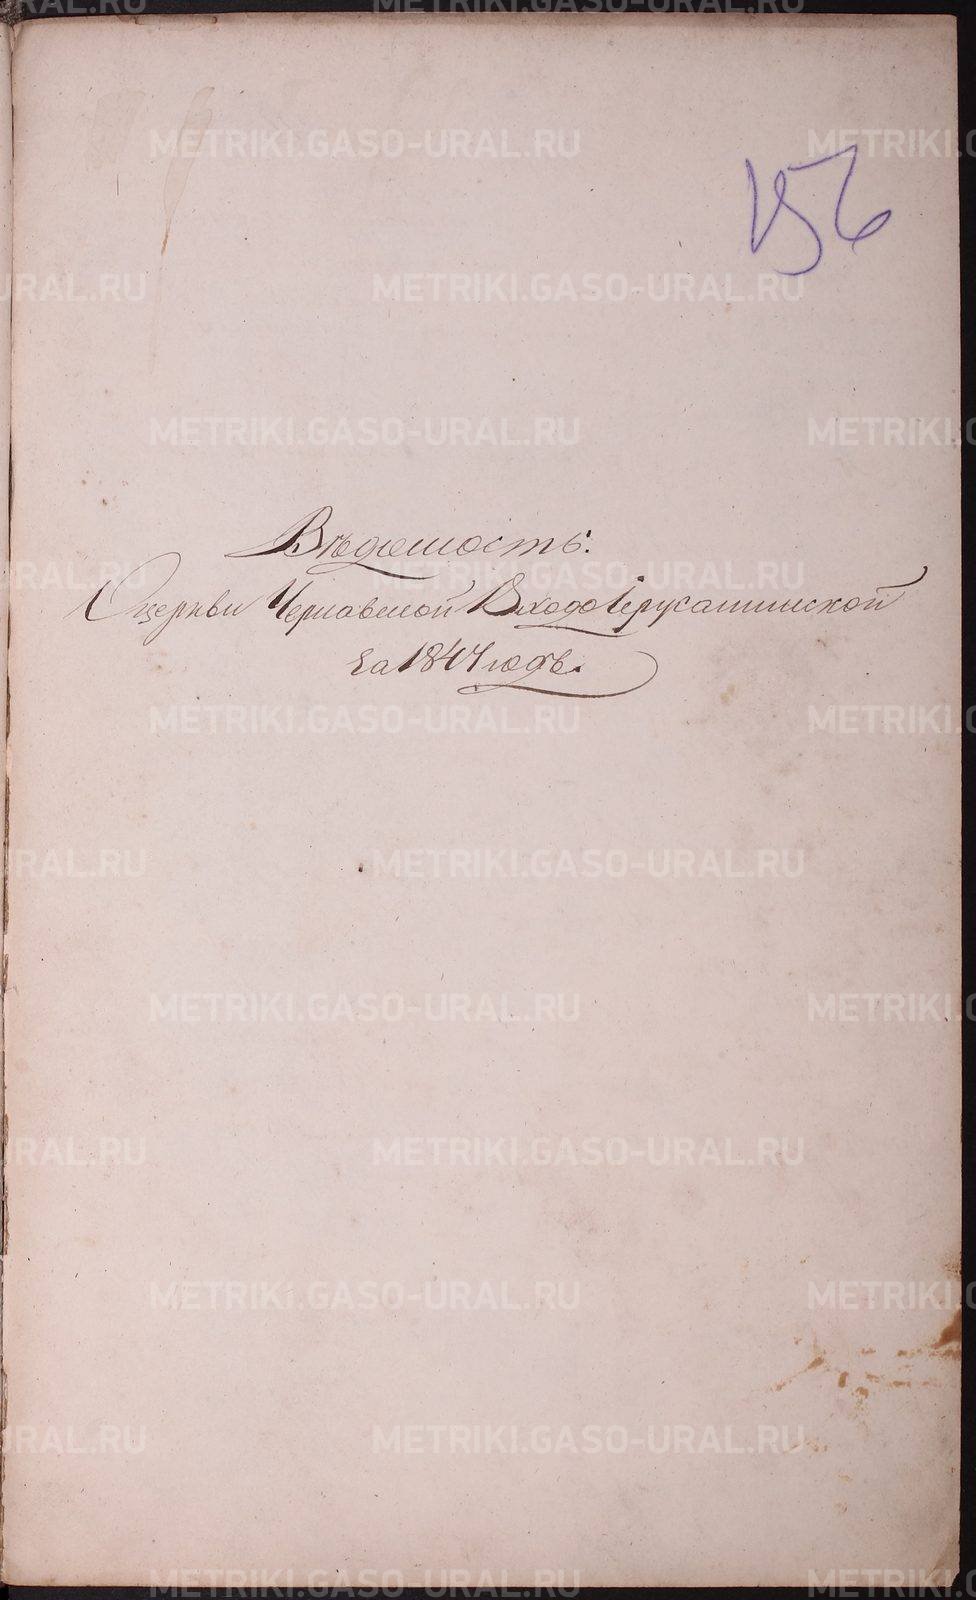 156
Вѣдомость:
О церкви Чернавской Входоіерусалимской
за 1847 годъ.
METRIKI.GASO-URAL.RU